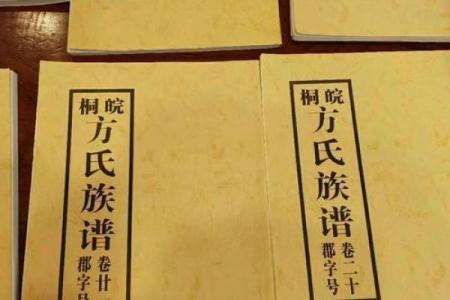 皖桐
方氏族谱
卷廿
郡字号
皖桐
方氏族谱
卷二十
郡字号